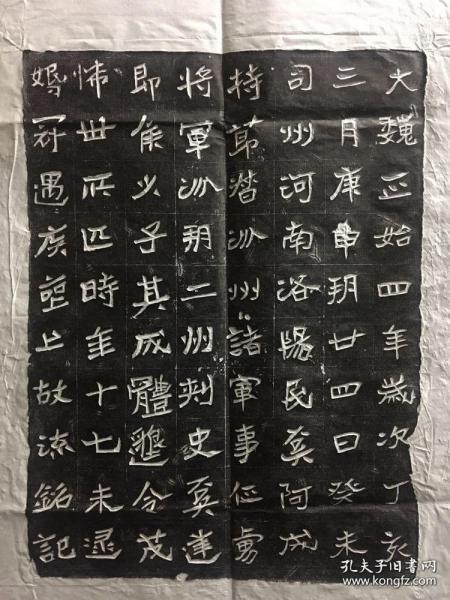 大魏正始四年歲次丁亥
三月庚申朔廿四日癸未
司州河南洛陽民奚阿成
持節督州諸軍事征虜
將軍朔二州刺史奚達
即侯少子其成體令茂
悕世所匹時年十七未還
婚冠遇疾薨亡故流銘記
孔夫子旧书网
www.kongfz.com